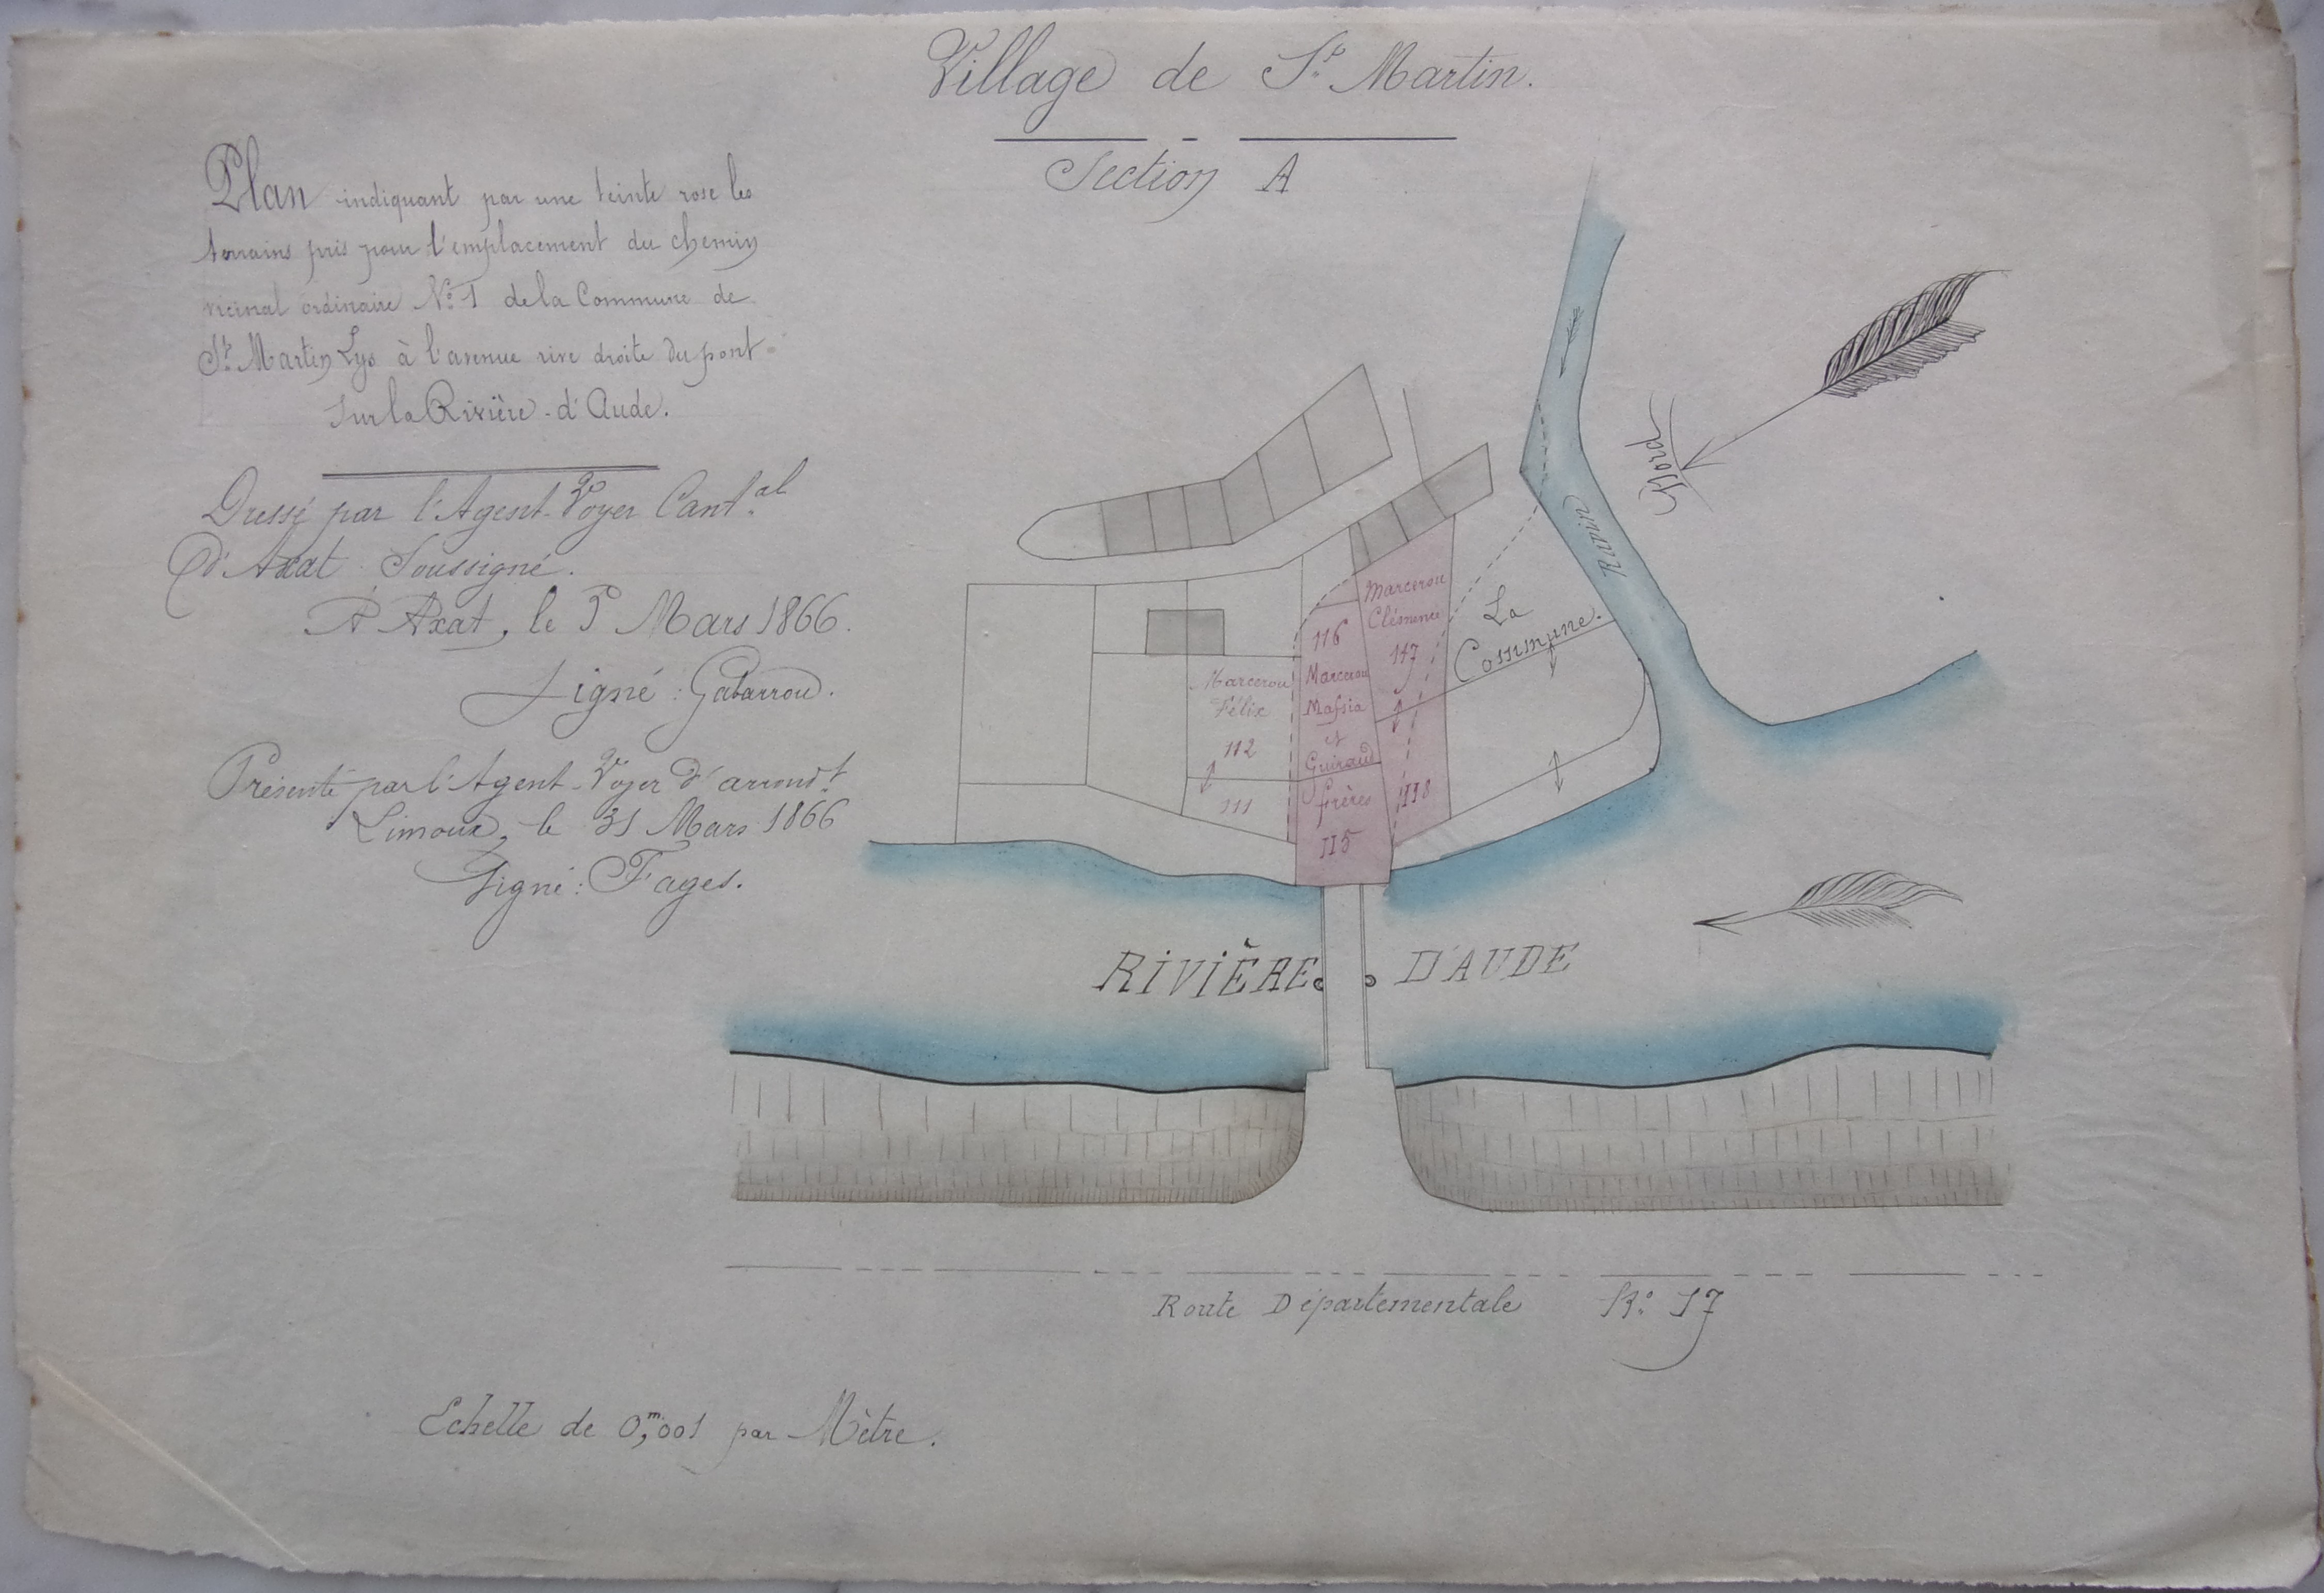 Village de St. Martin.
Section A
Plan indiquant par une teinte rose les
terrains pris pour l'emplacement du chemin
vicinal ordinaire No. 1 de la Commune de
St. Martin Lys à l'avenue rive droite du pont
sur la Rivière d'Aude.
Dressé par l'Agent-Voyer Cant.al
d'Axat Soussigné.
A Axat, le 5 Mars 1866.
Signé : Gabarrou.
Présenté par l'Agent-Voyer d'arrondt.
Limoux, le 31 Mars 1866
Signé : Fages.
Nord
Ravin
La
Commune.
Marcerou
Clémence
117
118
116
Marcerou
Massia
et
Guiraud
frères
115
Marcerou
Félix
112
111
RIVIÈRE D'AUDE
Route Départementale No. 17
Echelle de 0,m001 par Mètre.